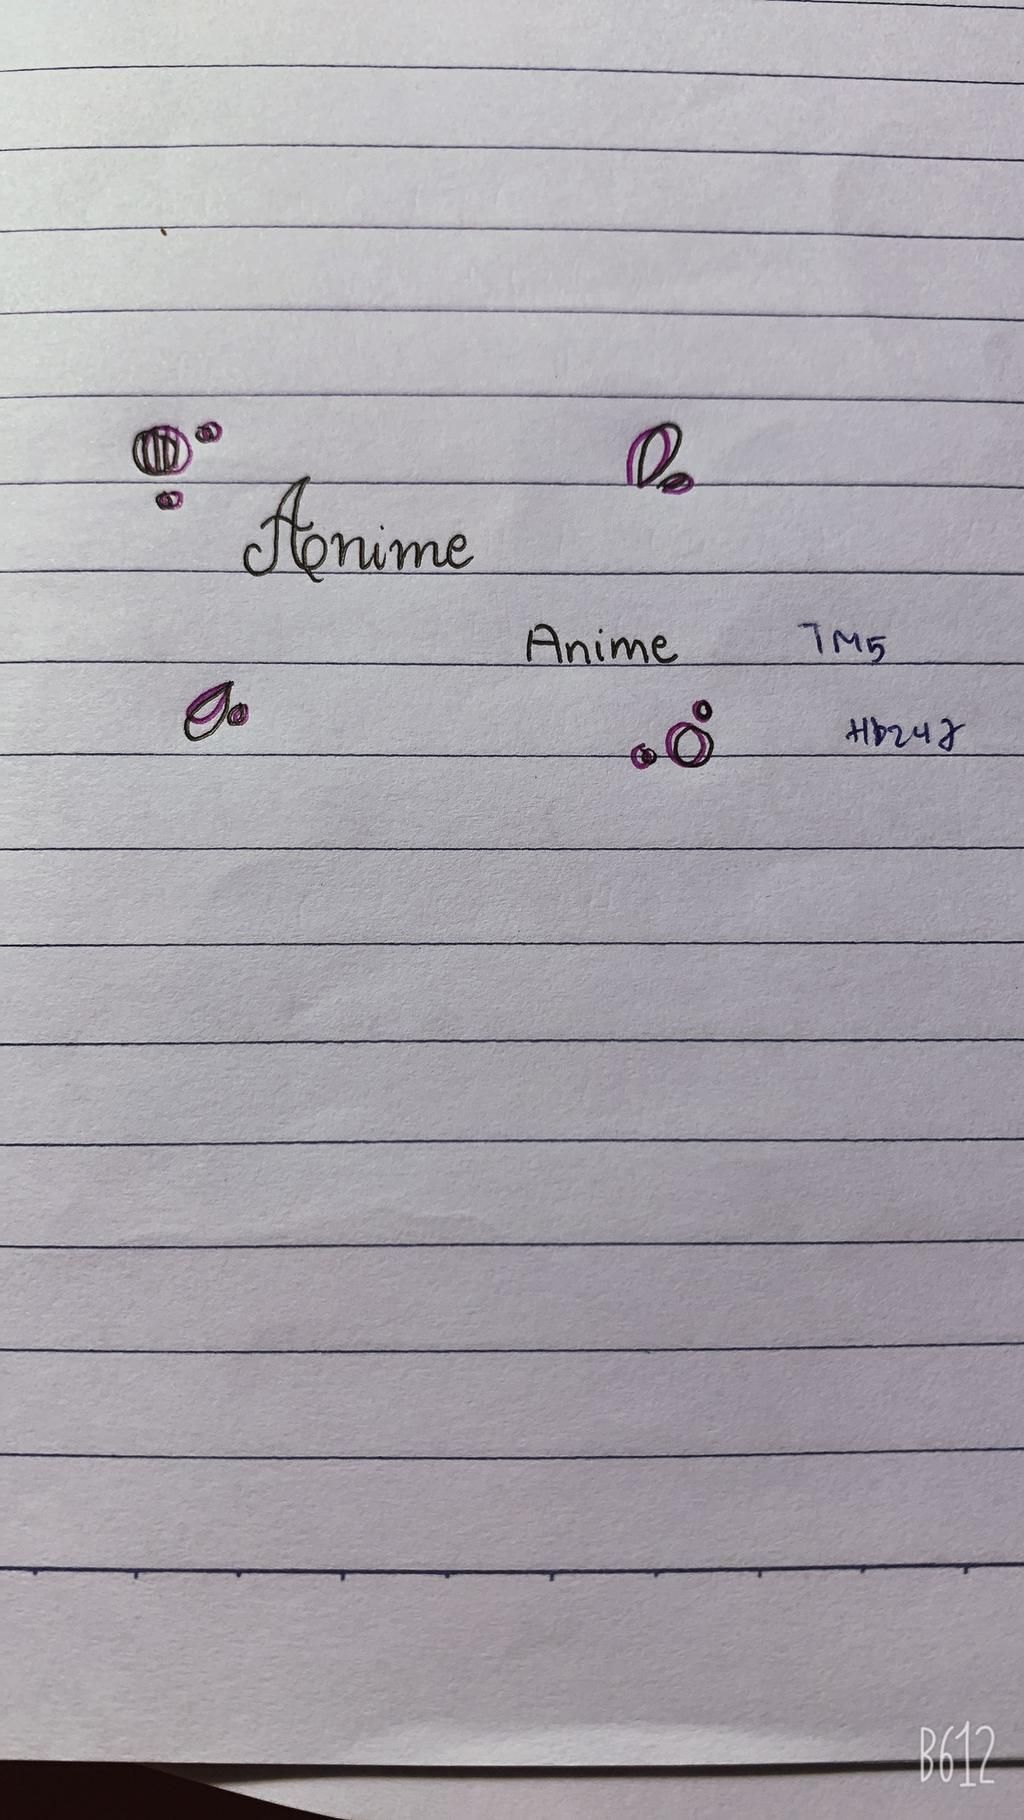 Anime
Anime TM5
Hb24J
B612